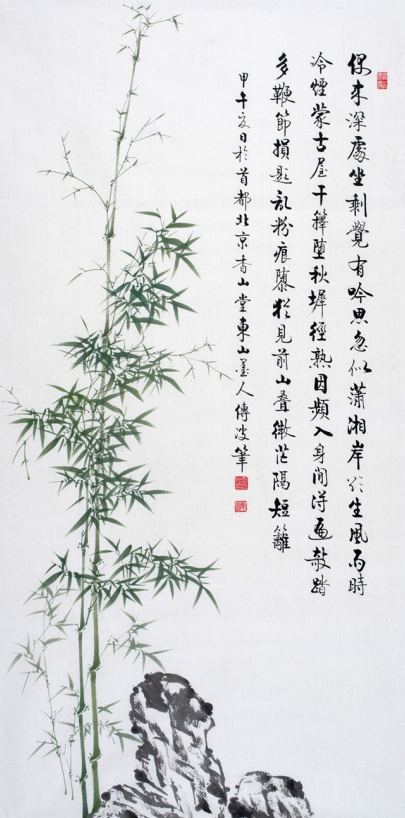 偶来深處坐剩覺有吟思忽似瀟湘岸欲生風雨時
冷煙蒙古屋干籜墮秋墀徑熟因頻入身閒得遍敧踏
多鞭節損題亂粉痕隳猶見前山疊微茫隔短籬
甲午夏日於首都北京香山堂東山墨人傳波筆